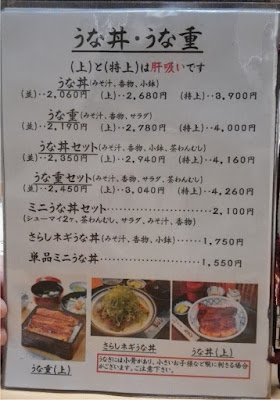 うな丼・うな重
(上)と(特上)は肝吸いです
うな丼(みそ汁、香物、小鉢)
(並)‥2,060円 (上)‥2,680円 (特上)‥3,900円
うな重(みそ汁、香物、サラダ)
(並)‥2,190円 (上)‥2,780円 (特上)‥4,000円
うな丼セット(みそ汁、香物、小鉢、茶わんむし)
(並)‥2,350円 (上)‥2,940円 (特上)‥4,160円
うな重セット(みそ汁、香物、サラダ、茶わんむし)
(並)‥2,450円 (上)‥3,040円 (特上)‥4,260円
ミニうな丼セット‥‥‥‥‥‥‥‥2,100円
(シューマイ2ヶ、茶わんむし、サラダ、みそ汁、香物)
さらしネギうな丼(みそ汁、香物、小鉢)‥‥1,750円
単品ミニうな丼‥‥‥‥‥‥‥‥‥1,550円
さらしネギうな丼
うな丼(上)
うな重(上)
うなぎには小骨があり、小さいお子様など喉に刺さる場合
がございます。ご注意下さい。